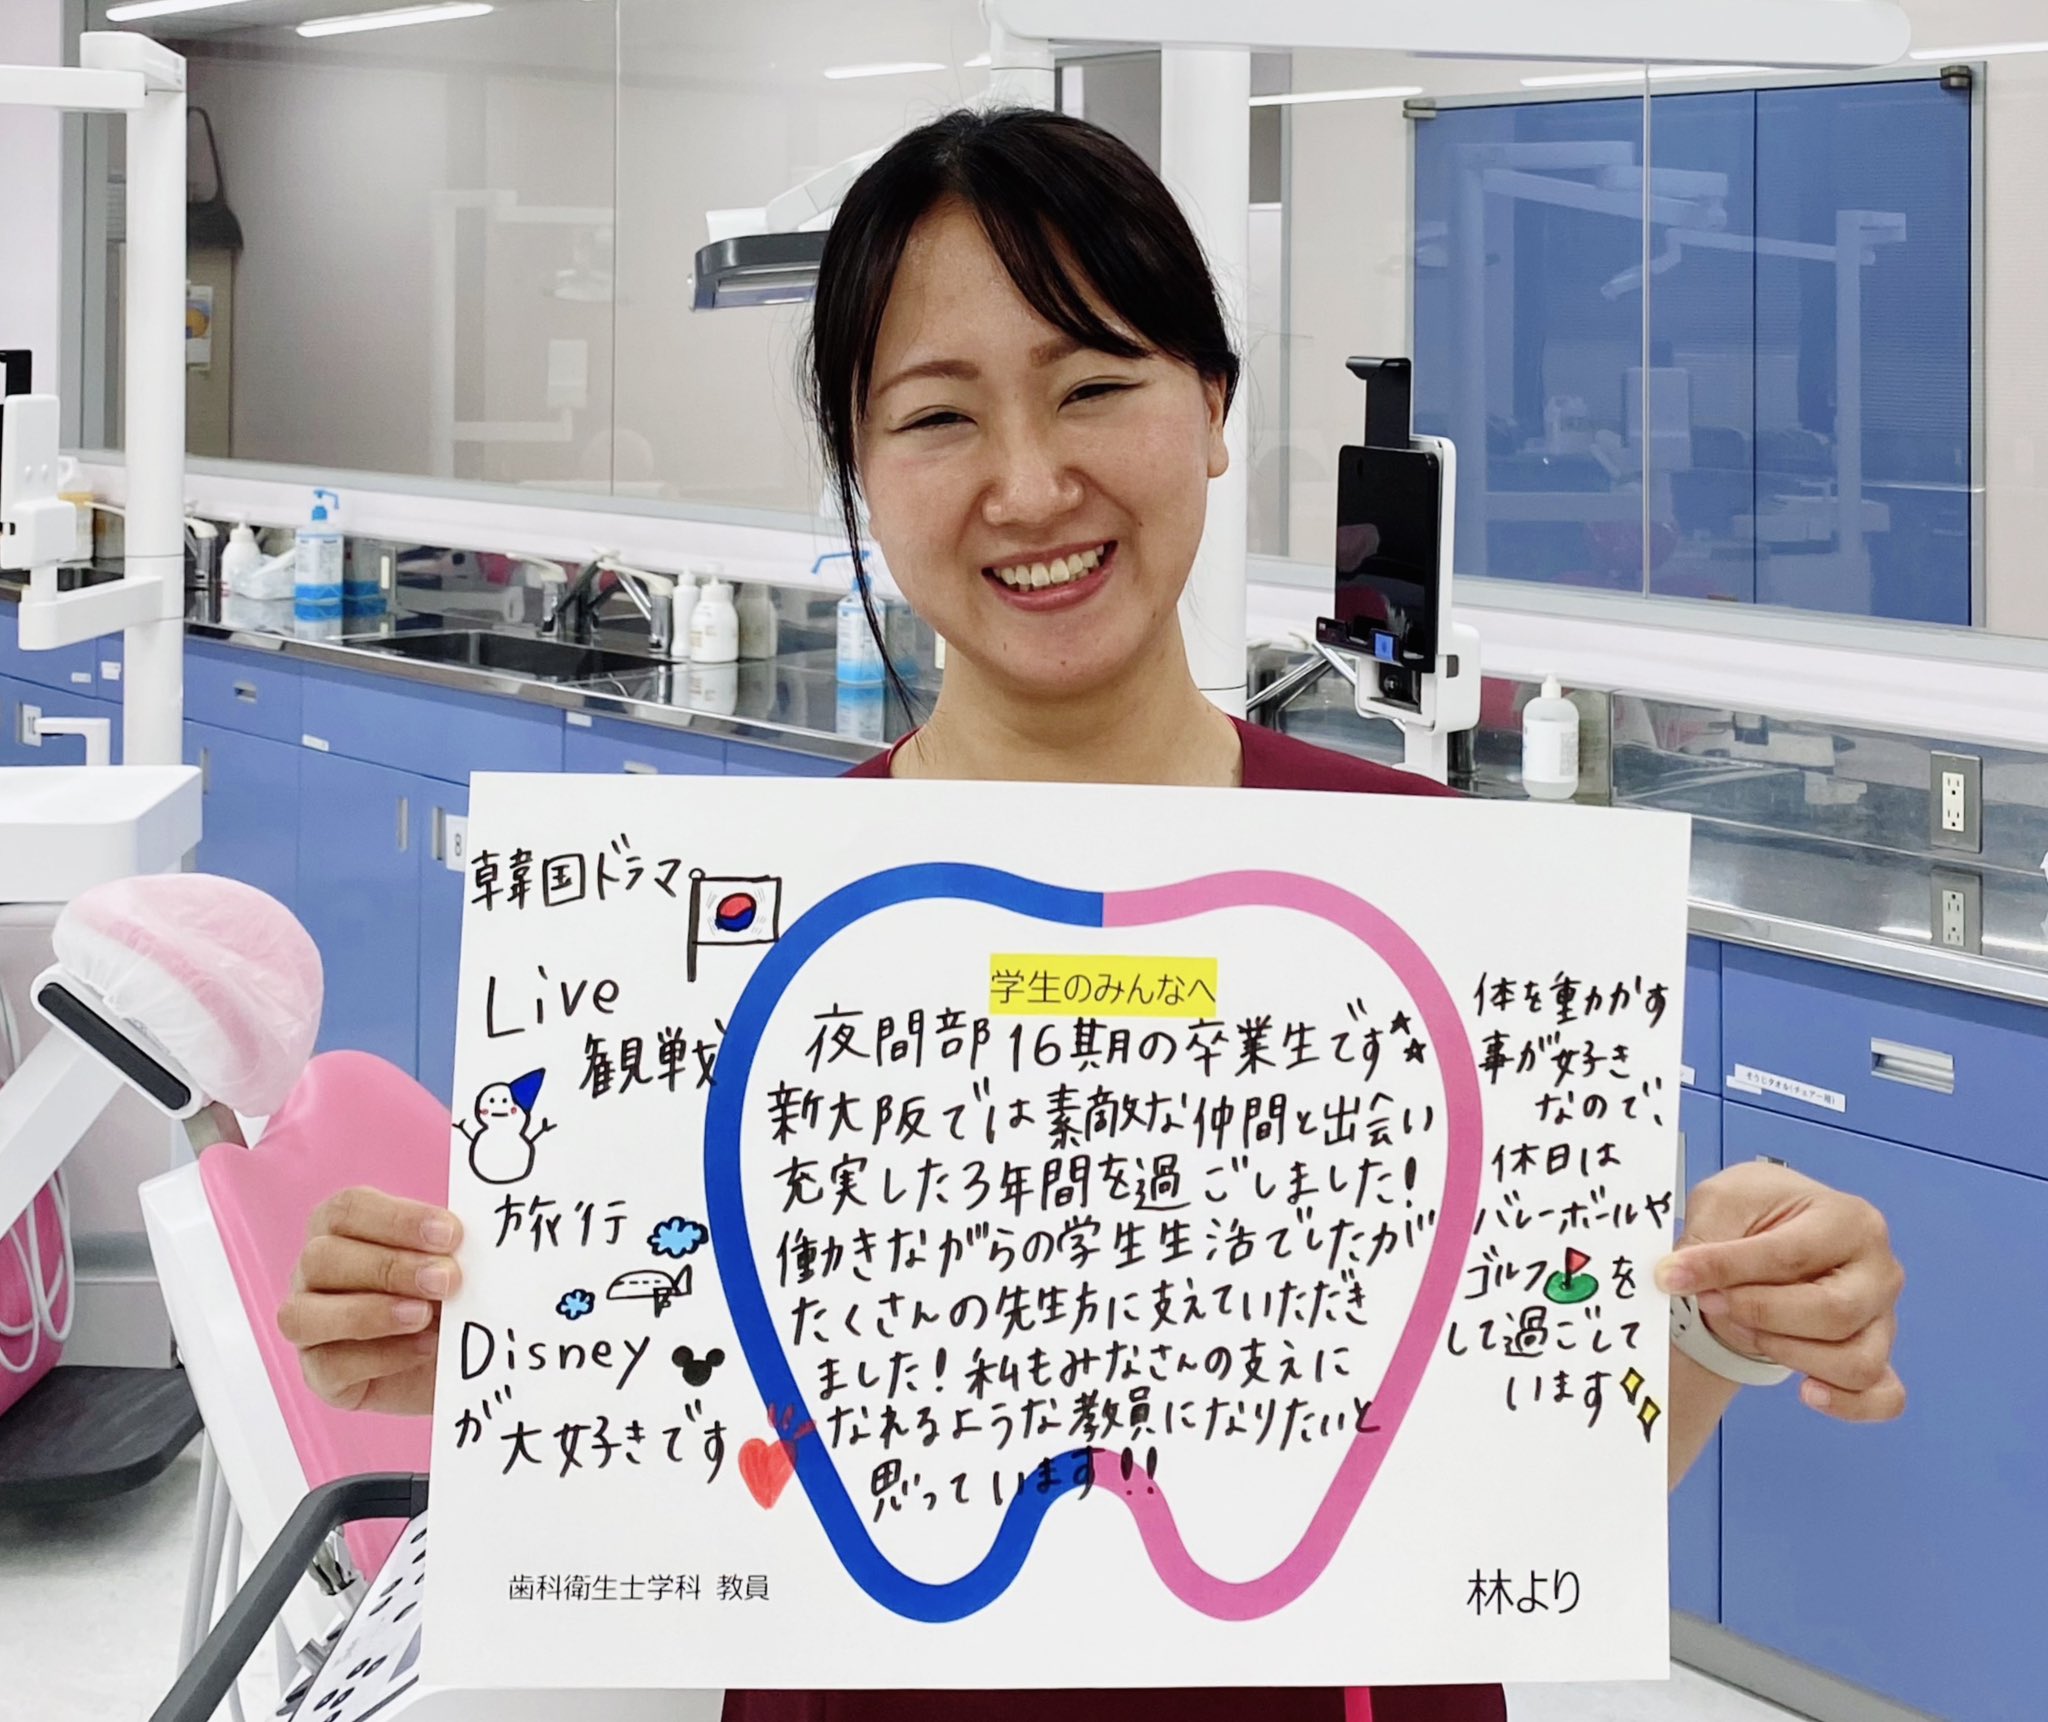 韓国ドラマ
Live
観戦
旅行
Disney
が大好きです
学生のみんなへ
夜間部16期の卒業生です
新大阪では素敵な仲間と出会い
充実した3年間を過ごしました!
働きながらの学生生活でしたが
たくさんの先生方に支えていただき
ました!私もみなさんの支えに
なれるような教員になりたいと
思っています!!
体を動かす
事が好き
なので、
休日は
バレーボールや
ゴルフを
して過ごして
います
歯科衛生士学科 教員
林より
8
そうじタオル(チェアー用)